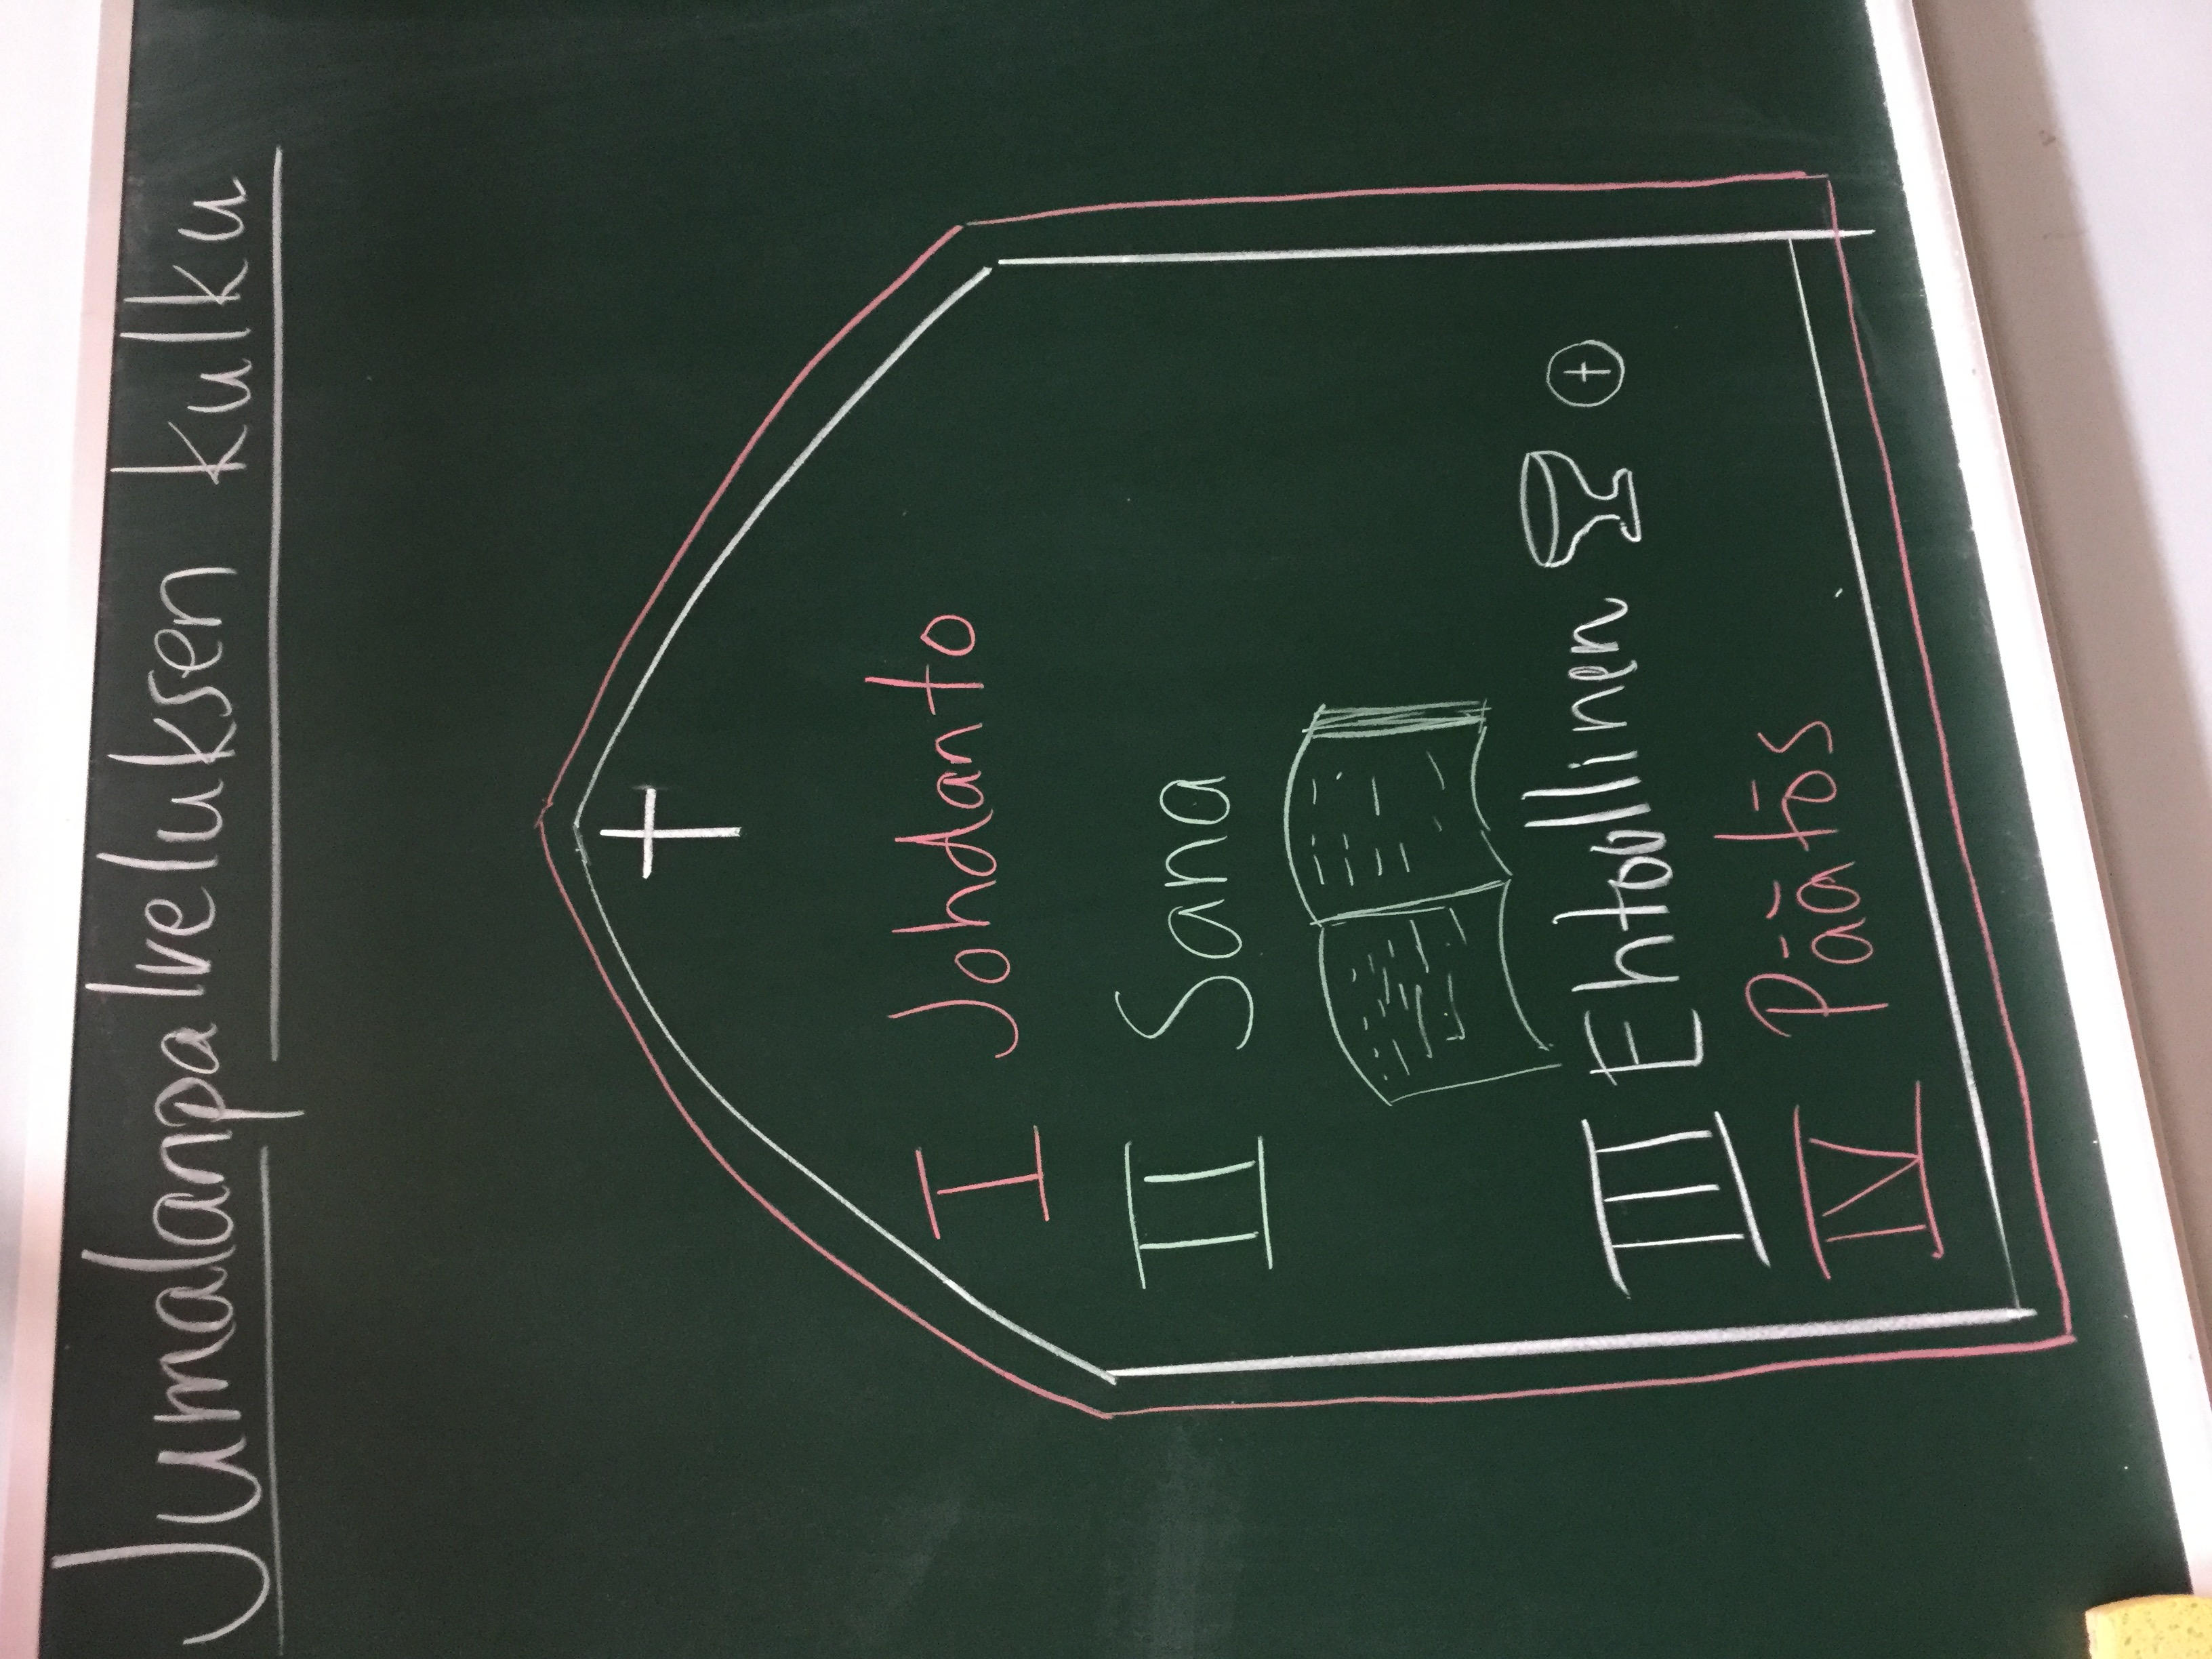 Jumalanpalveluksen kulku
I Johdanto
II Sana
III Ehtoollinen
IV Päätös